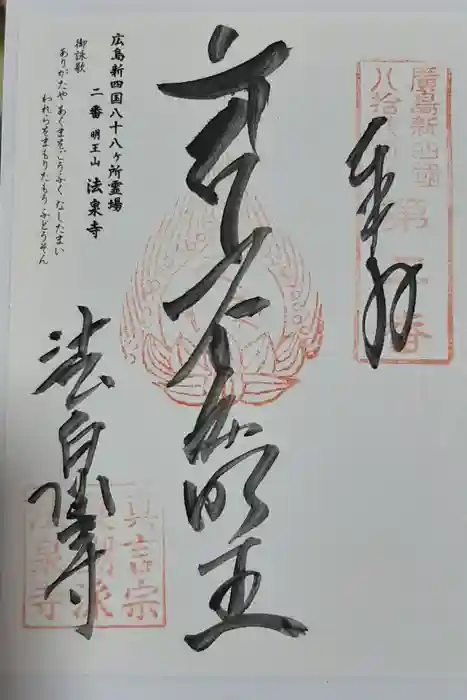 廣島新四國
八拾
第二番
奉拝
明王
広島新四国八十八ヶ所霊場
二番 明王山 法泉寺
御詠歌
ありがたや あくまをごうふく なしたまい
われらをまもりたもう ふどうそん
法泉寺
真言宗
派
法泉寺